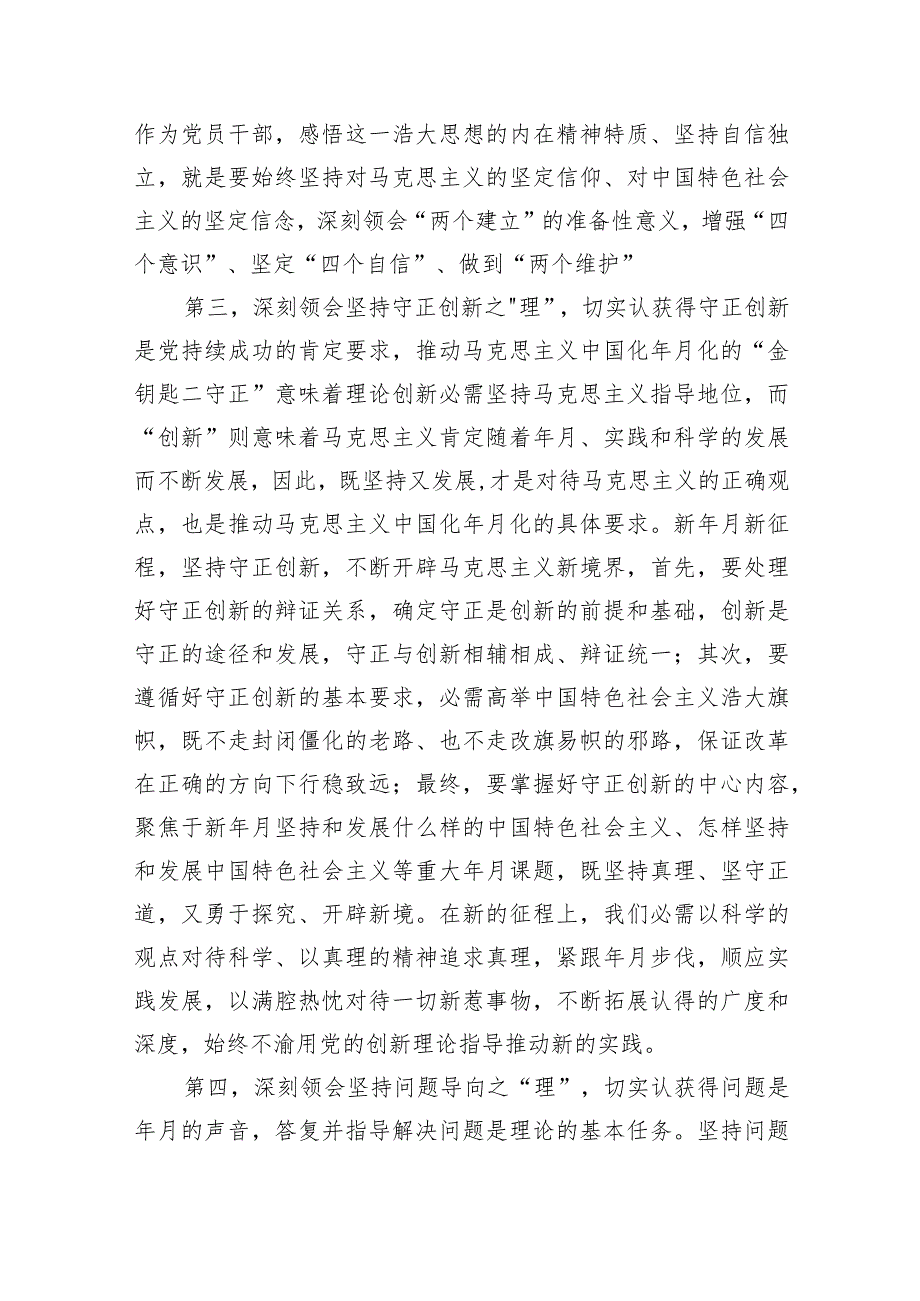 作为党员干部，感悟这一浩大思想的内在精神特质、坚持自信独
立，就是要始终坚持对马克思主义的坚定信仰、对中国特色社会
主义的坚定信念，深刻领会“两个建立”的准备性意义，增强“四
个意识”、坚定“四个自信”、做到“两个维护”
第三，深刻领会坚持守正创新之"理”，切实认获得守正创新
是党持续成功的肯定要求，推动马克思主义中国化年月化的“金
钥匙二守正”意味着理论创新必需坚持马克思主义指导地位，而
“创新”则意味着马克思主义肯定随着年月、实践和科学的发展
而不断发展，因此，既坚持又发展,才是对待马克思主义的正确观
点，也是推动马克思主义中国化年月化的具体要求。新年月新征
程，坚持守正创新，不断开辟马克思主义新境界，首先，要处理
好守正创新的辩证关系，确定守正是创新的前提和基础，创新是
守正的途径和发展，守正与创新相辅相成、辩证统一；其次，要
遵循好守正创新的基本要求，必需高举中国特色社会主义浩大旗
帜，既不走封闭僵化的老路、也不走改旗易帜的邪路，保证改革
在正确的方向下行稳致远；最终，要掌握好守正创新的中心内容，
聚焦于新年月坚持和发展什么样的中国特色社会主义、怎样坚持
和发展中国特色社会主义等重大年月课题，既坚持真理、坚守正
道，又勇于探究、开辟新境。在新的征程上，我们必需以科学的
观点对待科学、以真理的精神追求真理，紧跟年月步伐，顺应实
践发展，以满腔热忱对待一切新惹事物，不断拓展认得的广度和
深度，始终不渝用党的创新理论指导推动新的实践。
第四，深刻领会坚持问题导向之“理”，切实认获得问题是
年月的声音，答复并指导解决问题是理论的基本任务。坚持问题